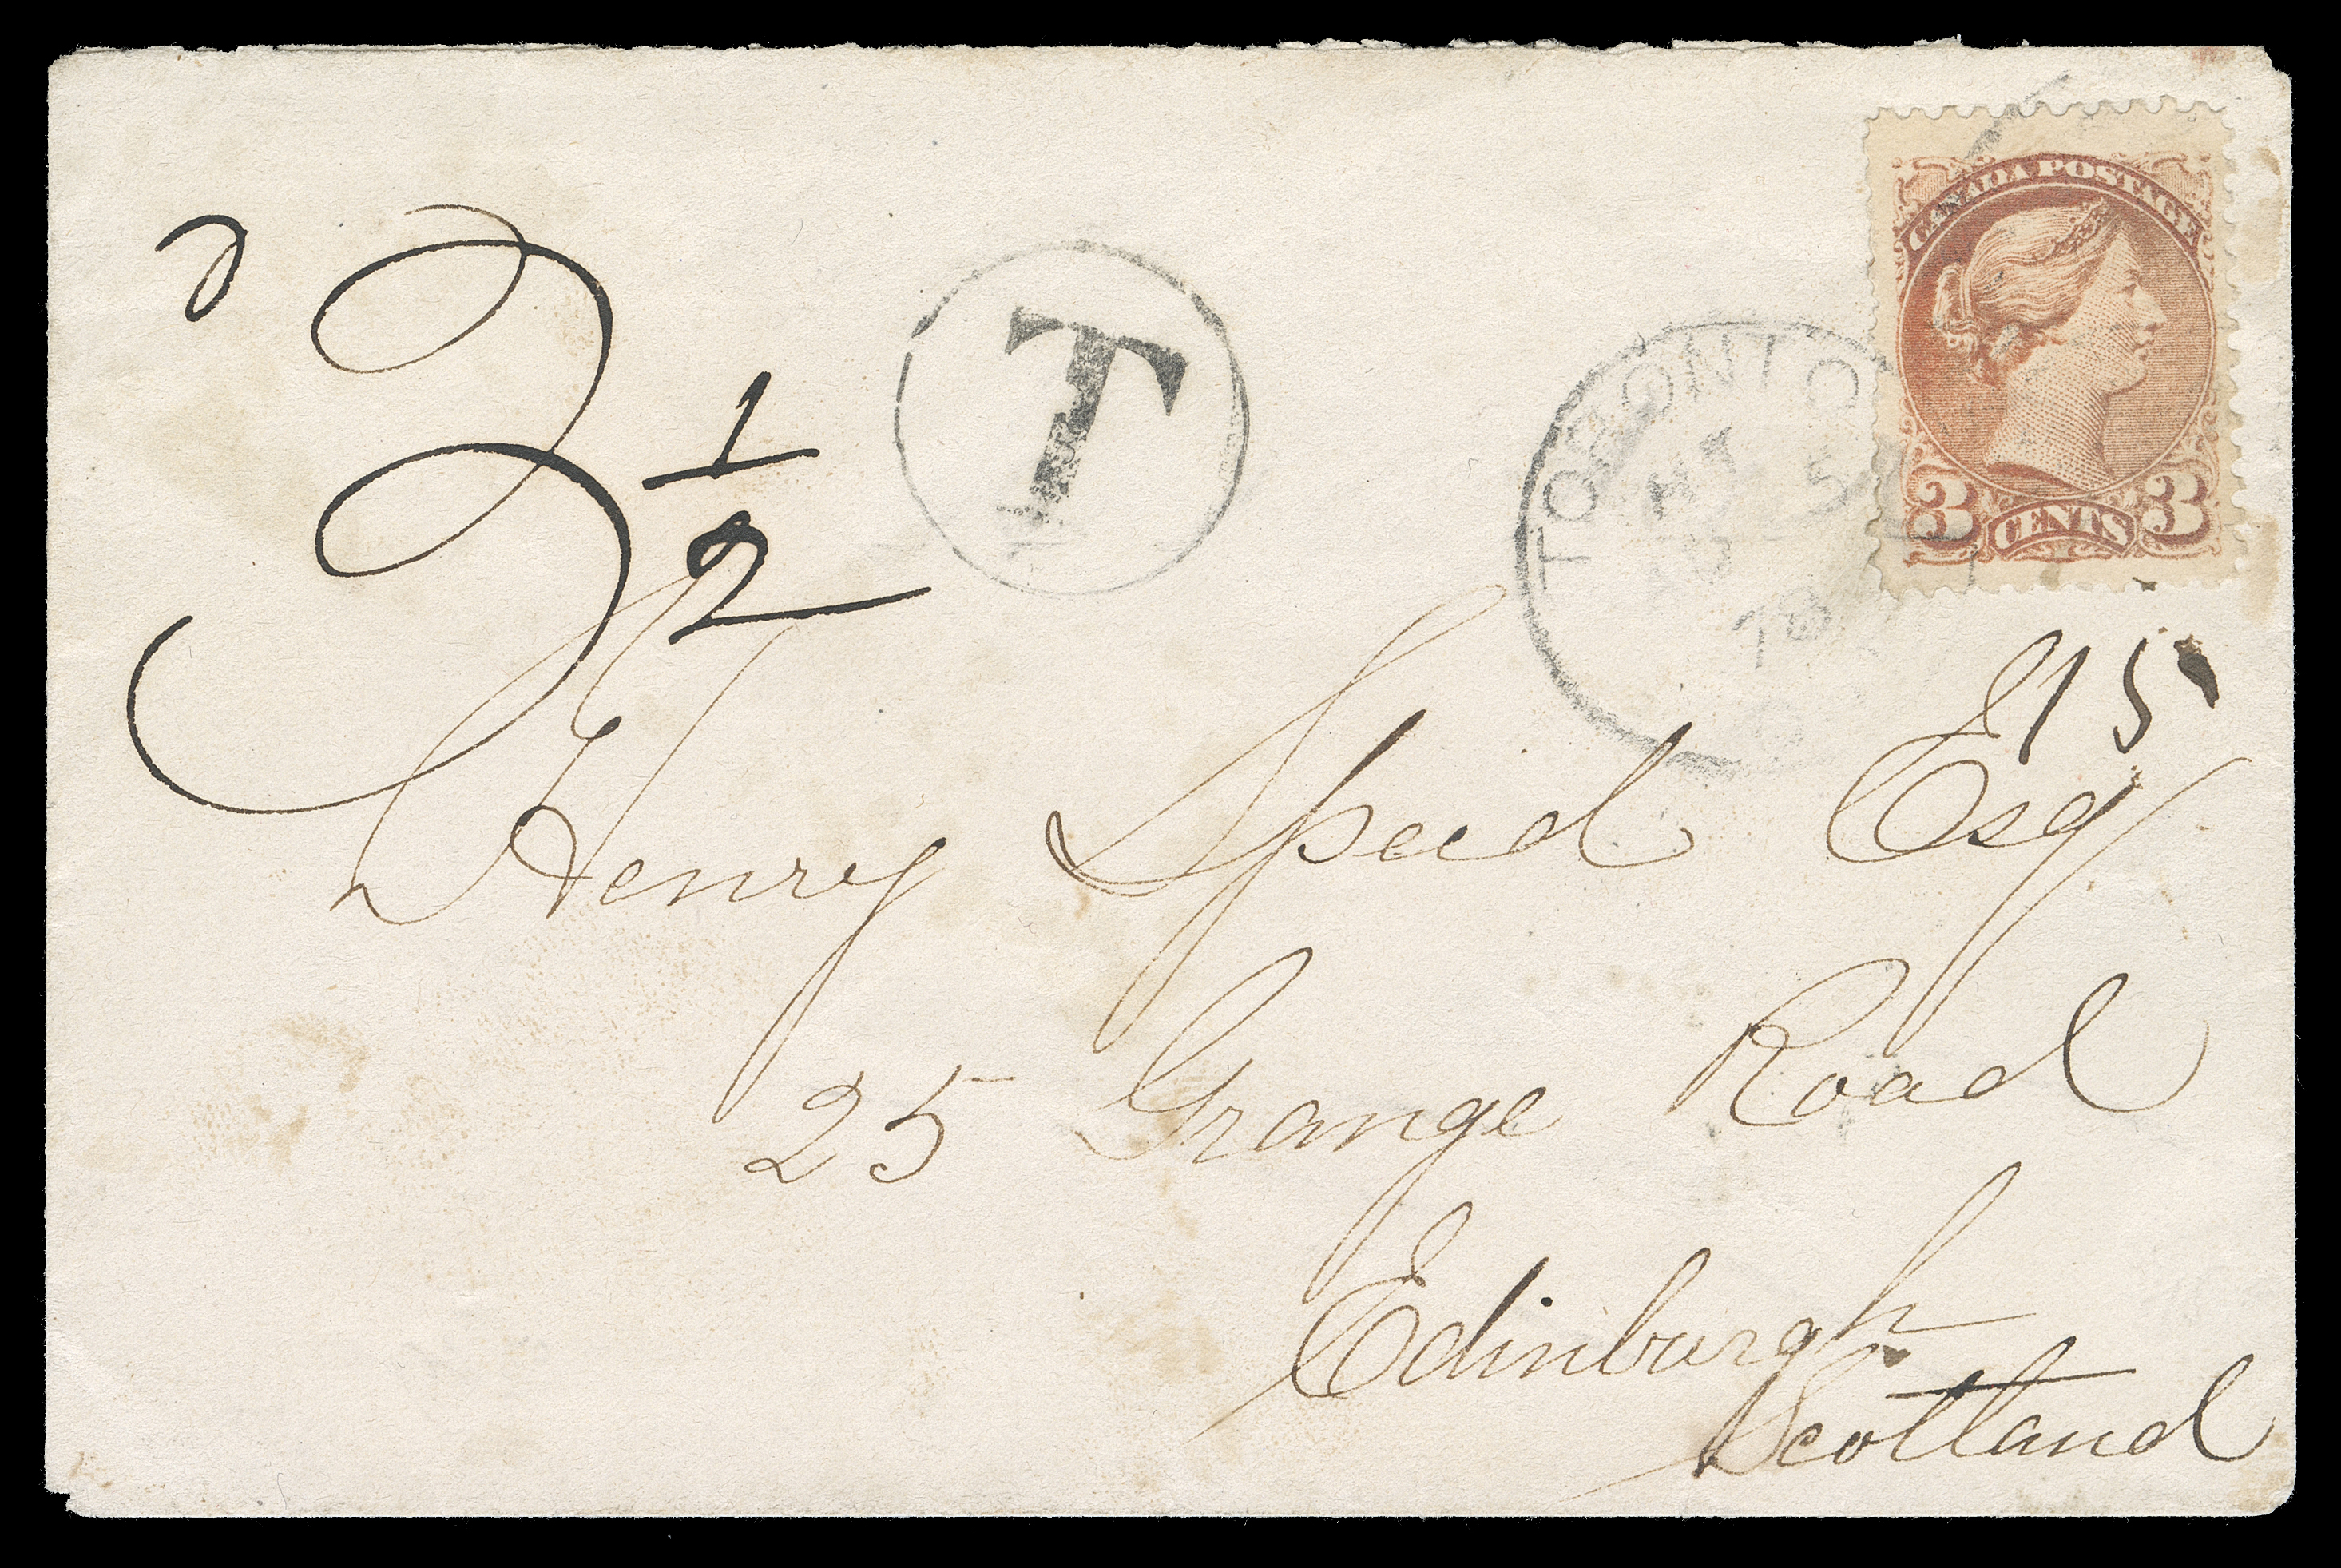 CANADA POSTAGE
3 CENTS 3
3 1/2
T
TORONTO
78
15
Henry Speid Esq
25 Grange Road
Edinburgh
Scotland